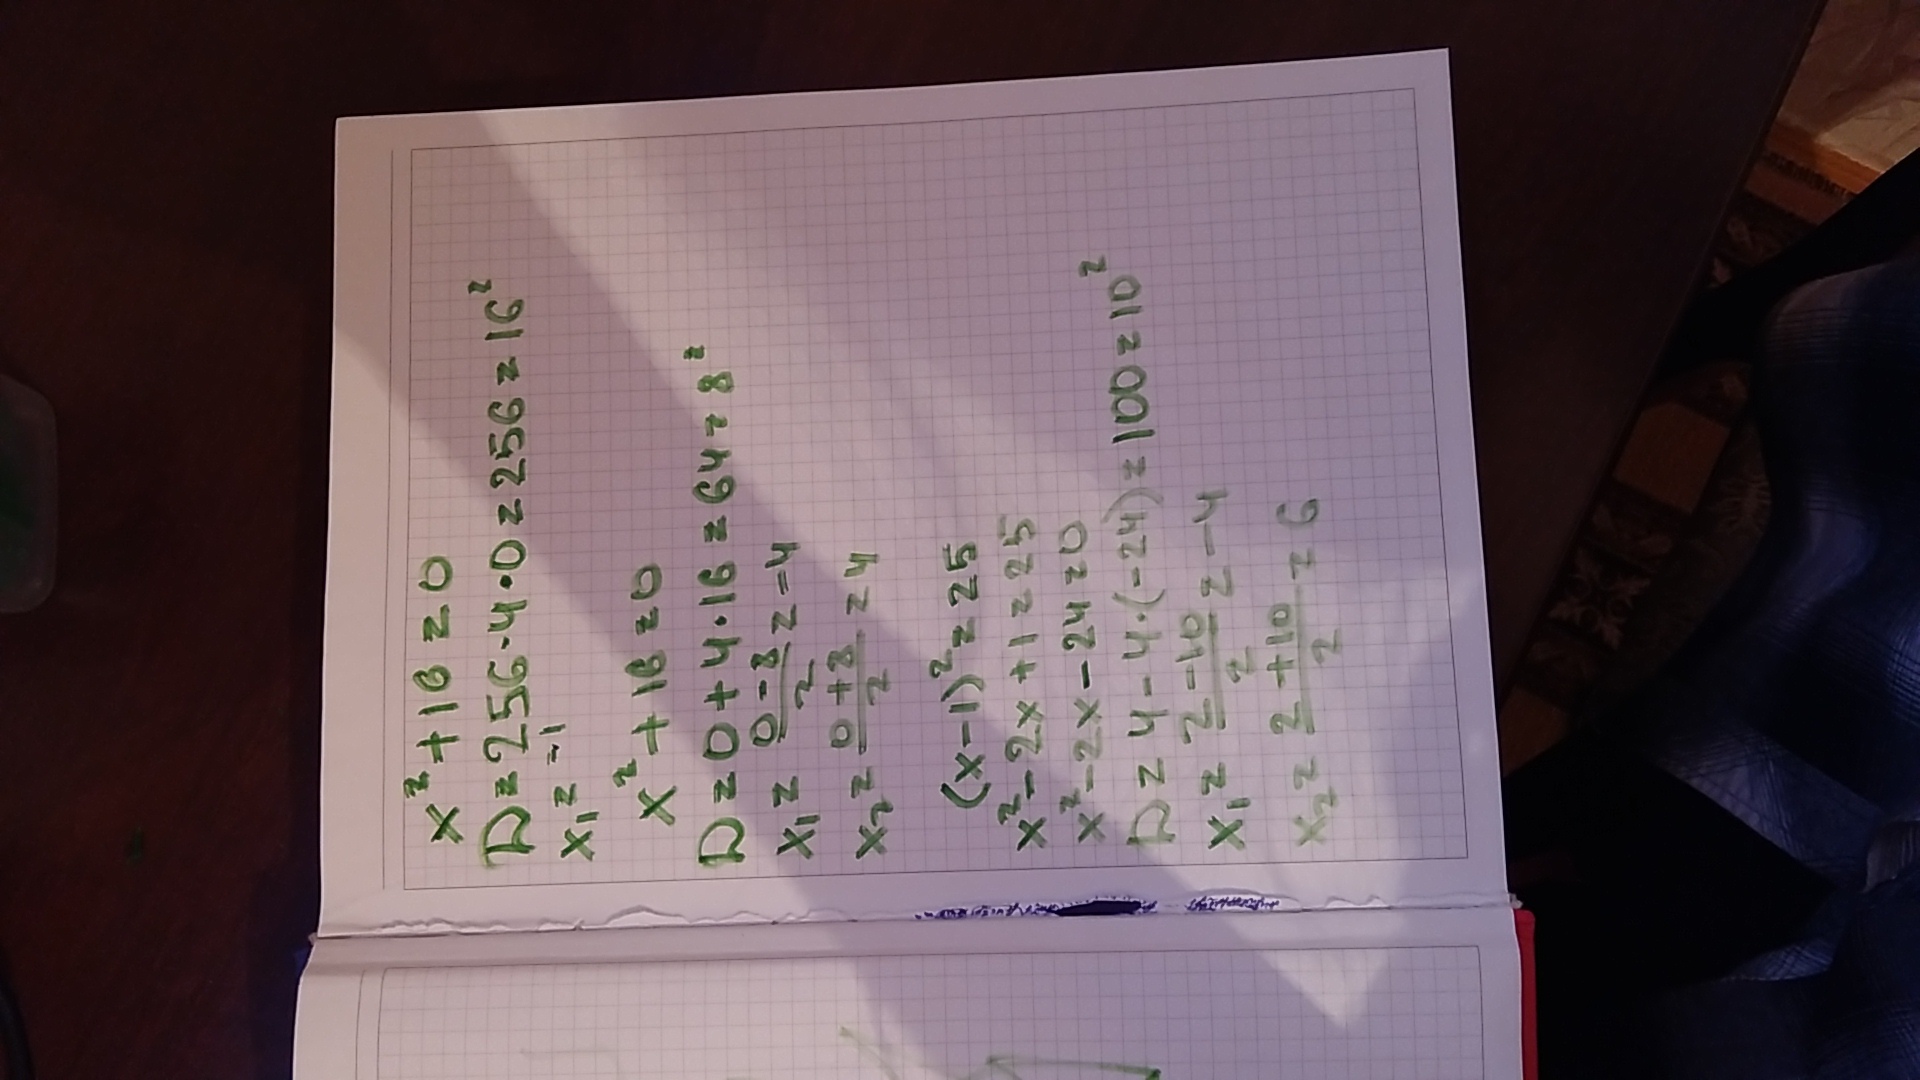 x² + 16 = 0
D = 256 - 4 · 0 = 256 = 16²
x₁ = -1
x² + 16 = 0
D = 0 + 4 · 16 = 64 = 8²
x₁ = (0 - 8)/2 = -4
x₂ = (0 + 8)/2 = 4
(x - 1)² = 25
x² - 2x + 1 = 25
x² - 2x - 24 = 0
D = 4 - 4 · (-24) = 100 = 10²
x₁ = (2 - 10)/2 = -4
x₂ = (2 + 10)/2 = 6